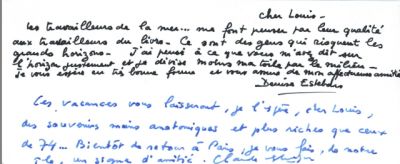 cher Louis -
Les travailleurs de la mer... me font penser par leur qualité
aux travailleurs du livre. Ce sont des gens qui risquent les
grands horizons - J'ai pensé à ce que vous m'avez dit sur
l'horizon justement et je divise moins ma toile par le milieu -
Je vous espère en très bonne forme et vous assure de mon affectueuse amitié
Denise Esteban
Les vacances vous laisseront, je l'espère, cher Louis,
des souvenirs moins anatomiques et plus riches que ceux
de 74... Bientôt de retour à Paris, je vous fais, de notre
île, un signe d'amitié. Claude